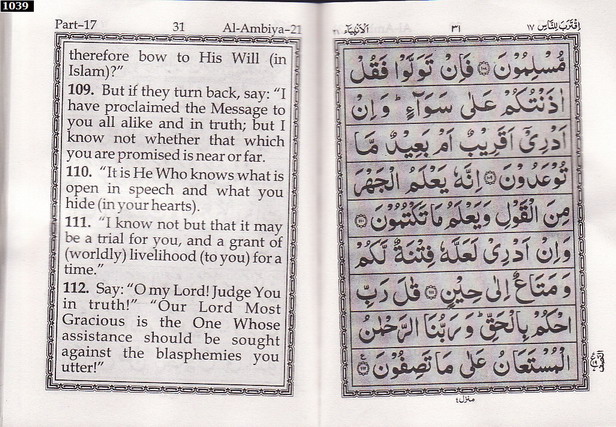 1039
Part–17 31 Al-Ambiya–21
therefore bow to His Will (in
Islam)?”
109. But if they turn back, say: “I
have proclaimed the Message to
you all alike and in truth; but I
know not whether that which
you are promised is near or far.
110. “It is He Who knows what is
open in speech and what you
hide (in your hearts).
111. “I know not but that it may
be a trial for you, and a grant of
(worldly) livelihood (to you) for a
time.”
112. Say: “O my Lord! Judge You
in truth!” “Our Lord Most
Gracious is the One Whose
assistance should be sought
against the blasphemies you
utter!”
اِقْتَرَبَ لِلنَّاسِ ١٧ ٣١ اَلْاَنْۢبِيَآء ٢١
مُّسْلِمُوْنَ ۝١٠٨ فَاِنْ تَوَلَّوْا فَقُلْ
اٰذَنْتُكُمْ عَلٰى سَوَآءٍ ؕ وَ اِنْ
اَدْرِىْۤ اَقَرِيْبٌ اَمْ بَعِيْدٌ مَّا
تُوْعَدُوْنَ ۝١٠٩ اِنَّهٗ يَعْلَمُ الْجَهْرَ
مِنَ الْقَوْلِ وَيَعْلَمُ مَا تَكْتُمُوْنَ ۝١١٠
وَاِنْ اَدْرِىْ لَعَلَّهٗ فِتْنَةٌ لَّكُمْ
وَ مَتَاعٌ اِلٰى حِيْنٍ ۝١١١ قٰلَ رَبِّ
احْكُمْ بِالْحَقِّ ؕ وَ رَبُّنَا الرَّحْمٰنُ
الْمُسْتَعَانُ عَلٰى مَا تَصِفُوْنَ ۝١١٢
منزل ٤